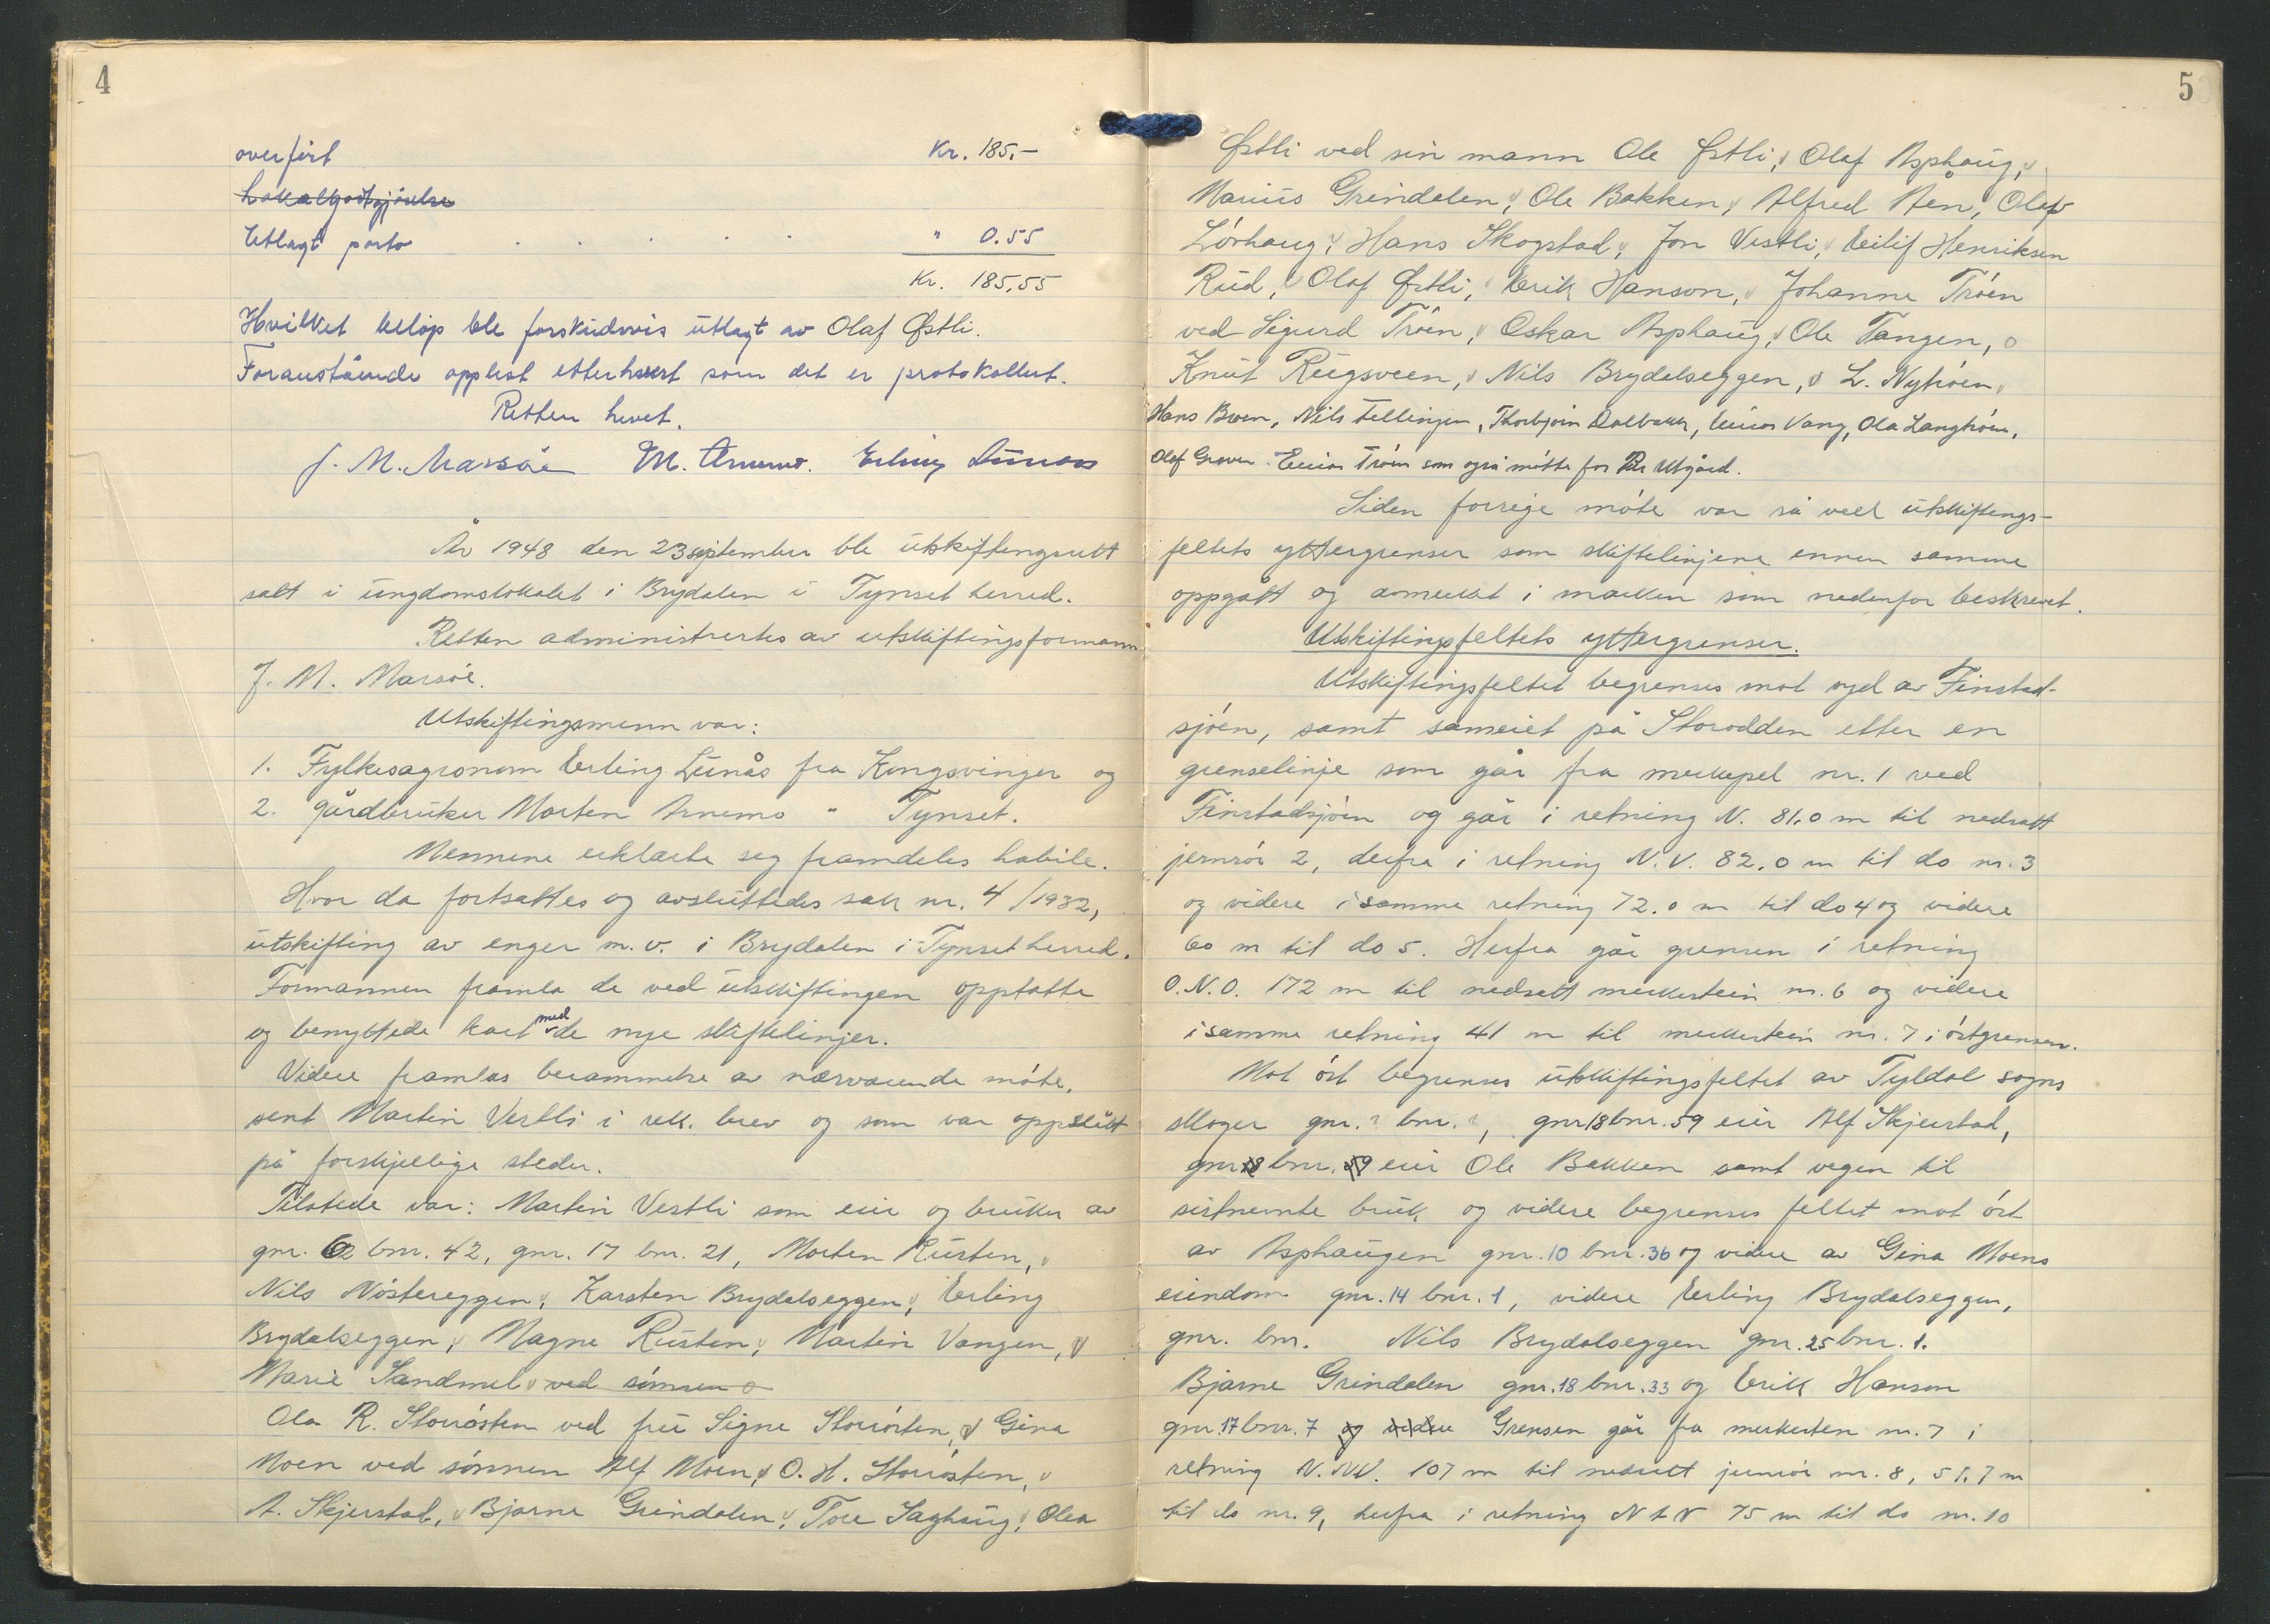 4
overført Kr. 185.-
Lokalgodtgjørelse
Utlagt porto . . . . . " 0.55
Kr. 185,55
Hvilket beløp ble forskudsvis utlagt av Olaf Østli.
Foranstående opplest etterhvert som det er protokollert.
Retten hevet.
J. M. Marsøe M. Arnemo. Erling Lunås
År 1948 den 23 september ble utskiftingsrett
satt i ungdomslokalet i Brydalen i Tynset herred.
Retten administrertes av utskiftingsformann
J. M. Marsöe.
Utskiftingsmenn var:
1. Fylkesagronom Erling Lunås fra Kongsvinger og
2. gårdbruker Morten Arnemo " Tynset.
Mennene erklærte seg framdeles habile.
Hvor da fortsattes og avsluttedes sak nr. 4/1932,
utskifting av enger m.v. i Brydalen i Tynset herred.
Formannen framla de ved utskiftingen opptatte
og benyttede kart med de nye skiftelinjer.
Videre framlas berammelse av nærværende möte,
sent Martin Vestli i rek. brev og som var oppslått
på forskjellige steder.
Tilstede var: Martin Vestli som eier og bruker av
gnr. 62 bnr. 42, gnr. 17 bnr. 21, Morten Rusten,
Nils Nöstereggen, Karsten Brydalseggen, Erling
Brydalseggen, Magne Rusten, Martin Vangen,
Marie Sandmel ved sönnen
Ola R. Storrösten ved fru Signe Storrösten, Gina
Moen ved sönnen Alf Moen, O. H. Storrösten,
A. Skjerstad, Bjarne Grindalen, Tore Saghaug, Olea
5
Østli ved sin mann Ole Østli, Olaf Asphaug,
Marius Grindalen, Ole Bakken, Alfred Åen, Olav
Lövhaug, Hans Skogstad, Jon Vestli, Eilif Henriksen
Rud, Olaf Østli, Erik Hanson, Johanne Tröen
ved Sigurd Tröen, Oskar Asphaug, Ole Tangen,
Knut Rugsveen, Nils Brydalseggen, L. Nytröen,
Hans Broen, Nils Tellingen, Thorbjörn Dalbakk, Einar Vang, Ola Langtröen,
Olaf Graven. Einar Tröen som også mötte for Per Utgård.
Siden forrige möte var så vell utskiftings-
feltets yttergrenser som skiftelinjene ennen samme
oppgått og avmerket i marken som nedenfor beskrevet.
Utskiftingsfeltets yttergrenser.
Utskiftingsfeltet begrenses mot syd av Finstad-
sjöen, samt sameiet på Storodden etter en
grenselinje som går fra merkepel nr. 1 ved
Finstadsjöen og går i retning N. 81.0 m til nedsatt
jernrör 2, derfra i retning N.V. 82.0 m til do nr. 3
og videre i samme retning 72.0 m til do 4 og videre
60 m til do 5. Herfra går grensen i retning
O.N.O. 172 m til nedsatt merkestein nr. 6 og videre
i samme retning 41 m til merkestein nr. 7 i östgrensen.
Mot öst begrenses utskiftingsfeltet av Tyldal sogns
skoger gnr. ? bnr. ?, gnr 18 bnr. 59 eier Alf Skjerstad,
gnr 18 bnr. 59 eier Ole Bakken samt vegen til
sistnevnte bruk og videre begrenses feltet mot öst
av Asphaugen gnr. 10 bnr. 36 og videre av Gina Moens
eiendom gnr. 14 bnr. 1, videre Erling Brydalseggen,
gnr. bnr. Nils Brydalseggen gnr. 25 bnr. 1.
Bjarne Grindalen gnr. 18 bnr. 33 og Erik Hanson
gnr. 17 bnr. 7 og videre Grensen går fra merkesten nr. 7 i
retning N.NV. 107 m til nedsatt jernrör nr. 8, 51.7 m
til do nr. 9, herfra i retning N t V 75 m til do nr. 10